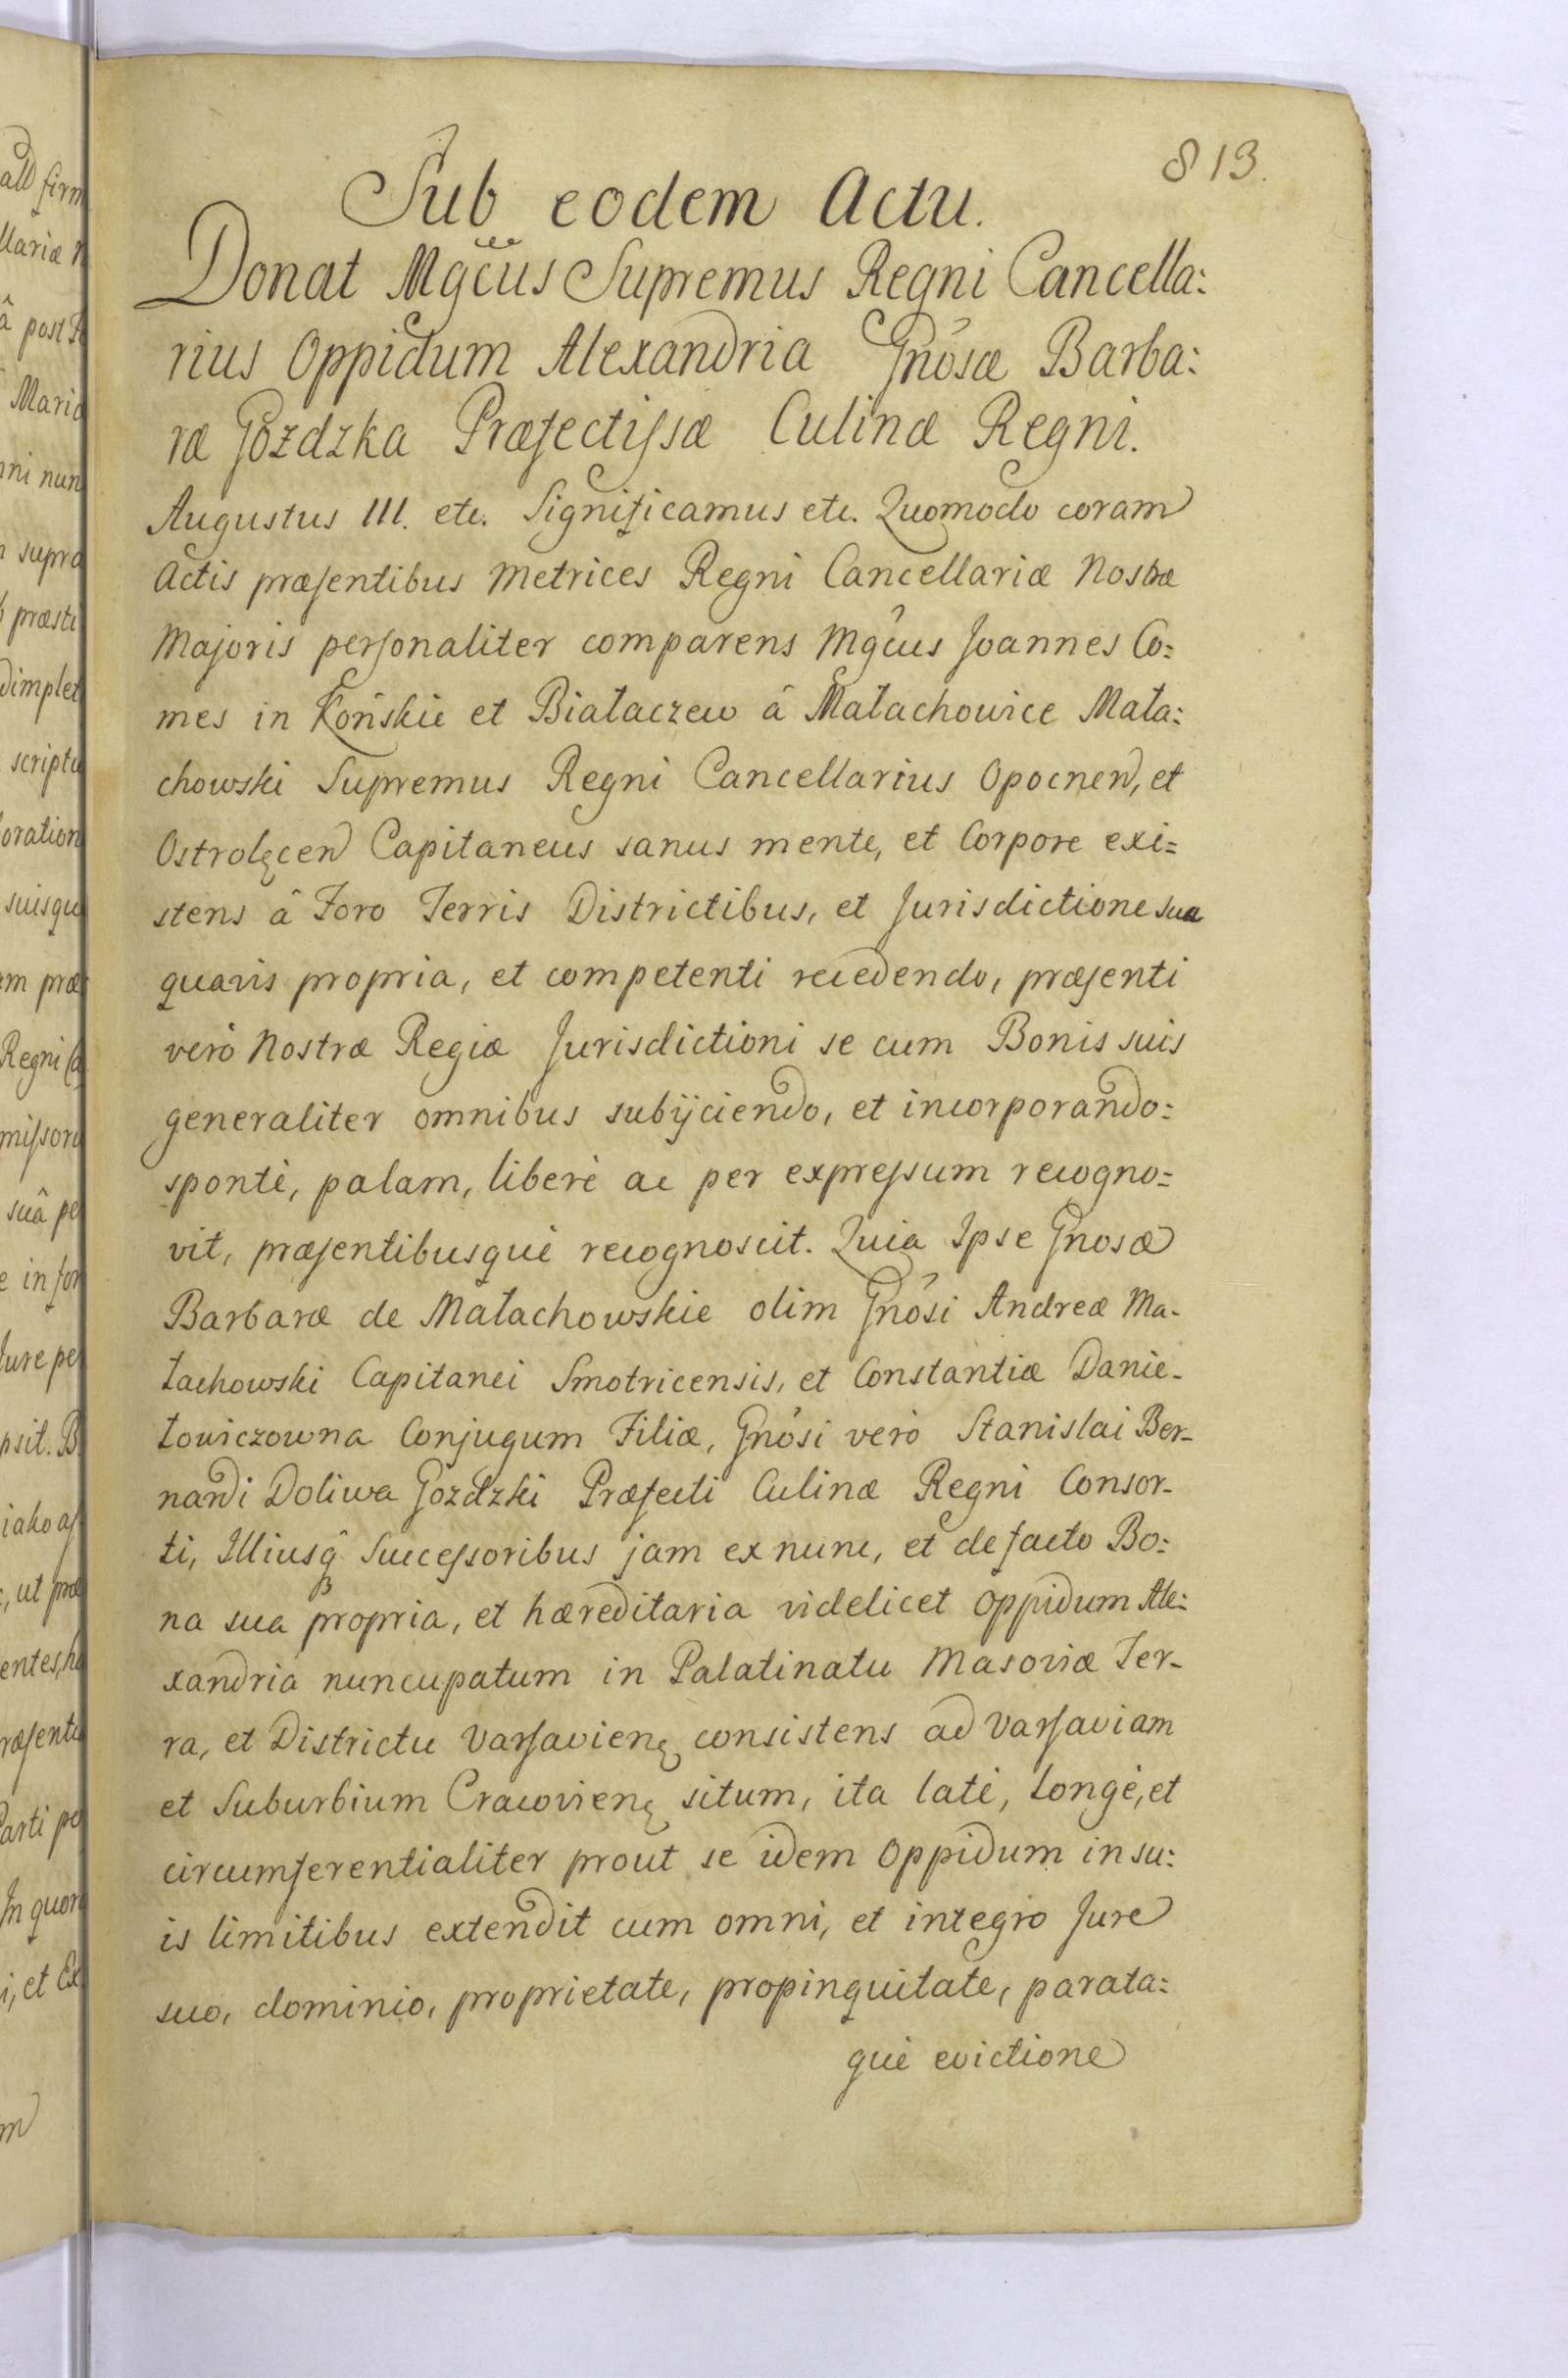 813.
Sub eodem Actu.
Donat Mgcus Supremus Regni Cancella:
rius Oppidum Alexandria Gnosæ Barba:
ræ Gozdzka Præfectißæ Culinæ Regni.
Augustus III. etc. Significamus etc. Quomodo coram
Actis præsentibus Metrices Regni Cancellariæ Nostræ
Majoris personaliter comparens Mgcus Joannes Co:
mes in Końskie et Białaczew â Małachowice Mała:
chowski Supremus Regni Cancellarius Opocnen, et
Ostrolęcen Capitaneus sanus mente, et Corpore exi=
stens â Foro Terris Districtibus, et Jurisdictione sua
quavis propria, et competenti recedendo, præsenti
verò Nostræ Regiæ Jurisdictioni se cum Bonis suis
generaliter omnibus subijciendo, et incorporando:
spontè, palam, liberè ac per expressum recogno=
vit, præsentibusquè recognoscit. Quia Ipse Gnosæ
Barbaræ de Małachowskie olim Gnosi Andreæ Ma-
łachowski Capitanei Smotricensis, et Constantiæ Danie-
łowiczowna Conjugum Filiæ, Gnosi verò Stanislai Ber-
nardi Doliwa Gozdzki Præfecti Culinæ Regni Consor-
ti, Illiusq̂ Successoribus jam ex nunc, et de facto Bo:
na sua propria, et hæreditaria videlicet Oppidum Ale:
xandria nuncupatum in Palatinatu Masoviæ Ter-
ra, et Districtu Varsavienę consistens ad Varsaviam
et Suburbium Cracovienę situm, ita latè, longè, et
circumferentialiter prout se idem Oppidum in su:
is limitibus extendit cum omni, et integro Jure
suo, dominio, proprietate, propinquitate, parata:
què evictione